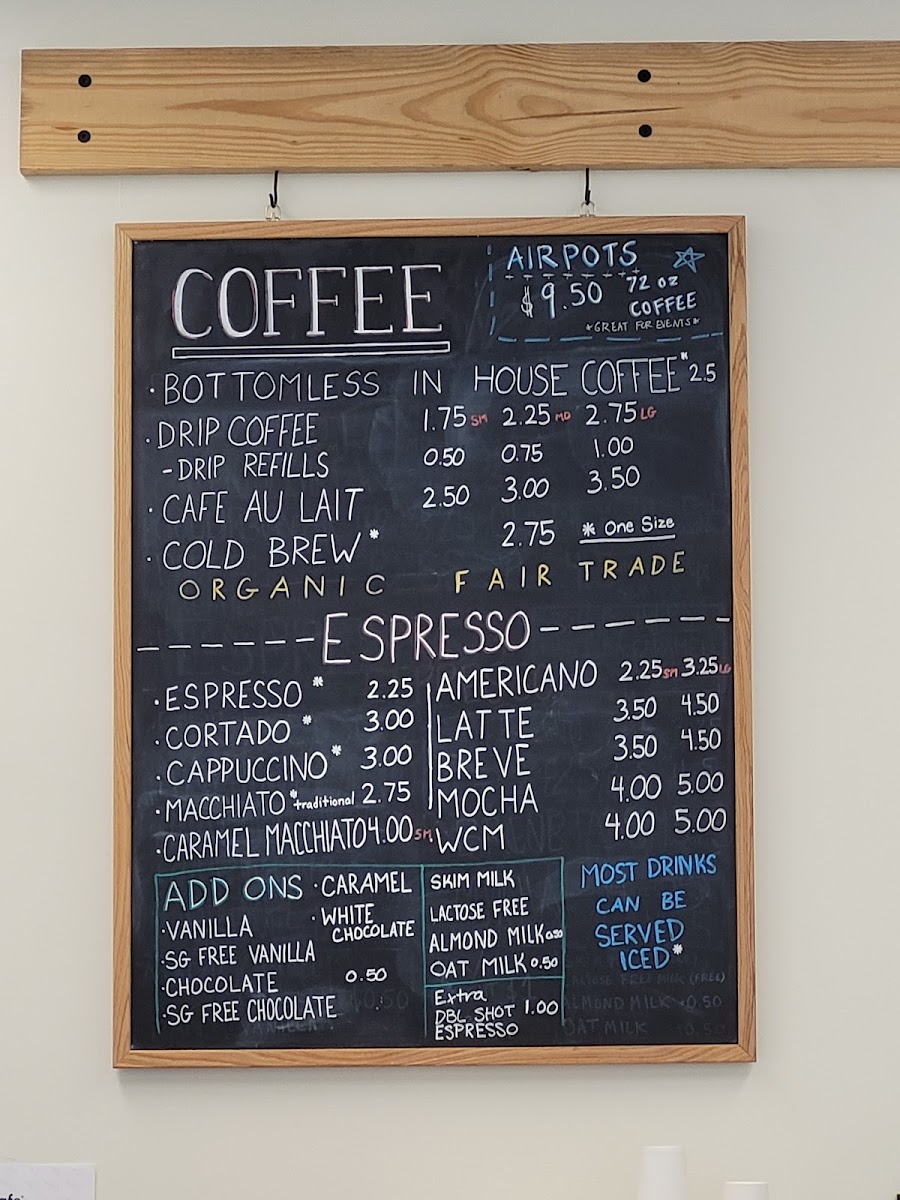 COFFEE
AIRPOTS
$9.50 72 oz
COFFEE
*GREAT FOR EVENTS*
· BOTTOMLESS IN HOUSE COFFEE* 2.5
· DRIP COFFEE 1.75 SM 2.25 MD 2.75 LG
- DRIP REFILLS 0.50 0.75 1.00
· CAFE AU LAIT 2.50 3.00 3.50
· COLD BREW* 2.75 * One Size
ORGANIC FAIR TRADE
ESPRESSO
· ESPRESSO* 2.25
· CORTADO* 3.00
· CAPPUCCINO* 3.00
· MACCHIATO *traditional 2.75
· CARAMEL MACCHIATO 4.00 SM
AMERICANO 2.25 SM 3.25 LG
LATTE 3.50 4.50
BREVE 3.50 4.50
MOCHA 4.00 5.00
· WCM 4.00 5.00
ADD ONS
· VANILLA
· SG FREE VANILLA
· CHOCOLATE
· SG FREE CHOCOLATE
· CARAMEL
· WHITE
CHOCOLATE
0.50
SKIM MILK
LACTOSE FREE
ALMOND MILK 0.50
OAT MILK 0.50
Extra
DBL SHOT 1.00
ESPRESSO
MOST DRINKS
CAN BE
SERVED
ICED*
LACTOSE FREE MILK (FREE)
ALMOND MILK +0.50
OAT MILK +0.50